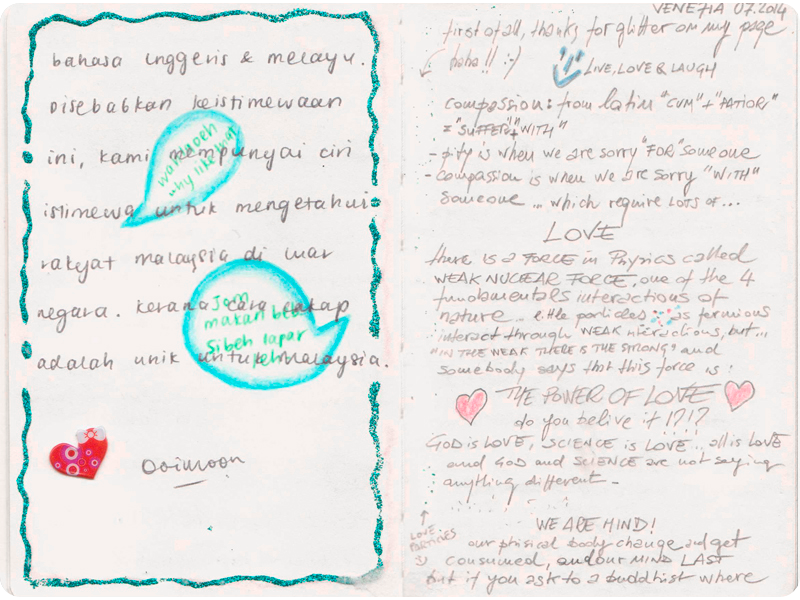 bahasa Inggeris & melayu.
Disebabkan keistimewaan
ini, kami mempunyai ciri
istimewa untuk mengetahui
rakyat malaysia di luar
negara. kerana cara cakap
adalah unik untuk Malaysia.
"why like that
Jam
makan beb
Sibeh lapar
leh
Ooimoon
VENEZIA 07.2014
first of all, thanks for glitter on my page
haha!! :-)
LIVE, LOVE & LAUGH
compassion: from latin "CUM" + "PATIOR"
= "SUFFER + WITH"
- pity is when we are sorry "FOR" someone
- compassion is when we are sorry "WITH"
someone ... which require LOTS OF ...
LOVE
there is a FORCE in Physics called
WEAK NUCLEAR FORCE, one of the 4
fundamentals interactions of
nature.. little particles as fermions
interact through WEAK interactions, but...
"IN THE WEAK THERE IS THE STRONG" and
somebody says that this force is:
THE POWER OF LOVE
do you belive it !?!?
GOD is LOVE, SCIENCE is LOVE... all is LOVE
and GOD and SCIENCE are not saying
anything different -
LOVE
PARTICLES
:)
WE ARE MIND!
our phisical body change and get
consumed, and our MIND LAST
but if you ask to a buddhist where